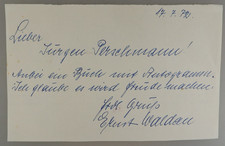 17.7.79
Lieber
Jürgen Perschmann!
Anbei ein Bischl mit Autogramm.
Ich glaube es wird freude machen.
Herzl Gruß
Ernst Waldau